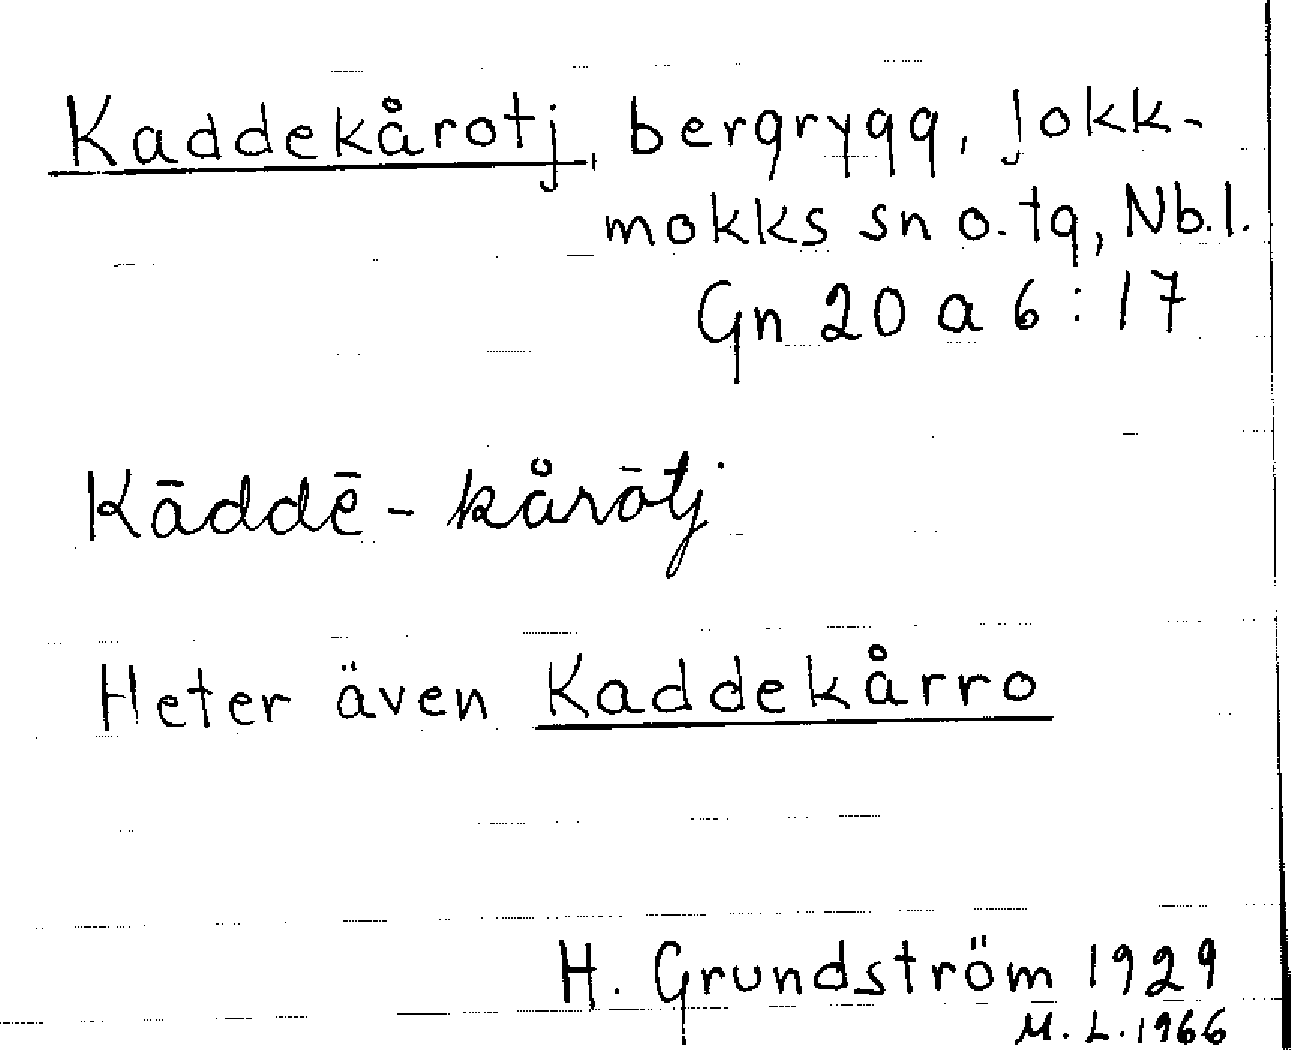 Kaddekårotj, bergrygg, Jokk-
mokks sn o. tg, Nb. l.
Gn 20 a 6:17
Kāddē-kårātj
Heter även Kaddekårro
H. Grundström 1929
M. L. 1966